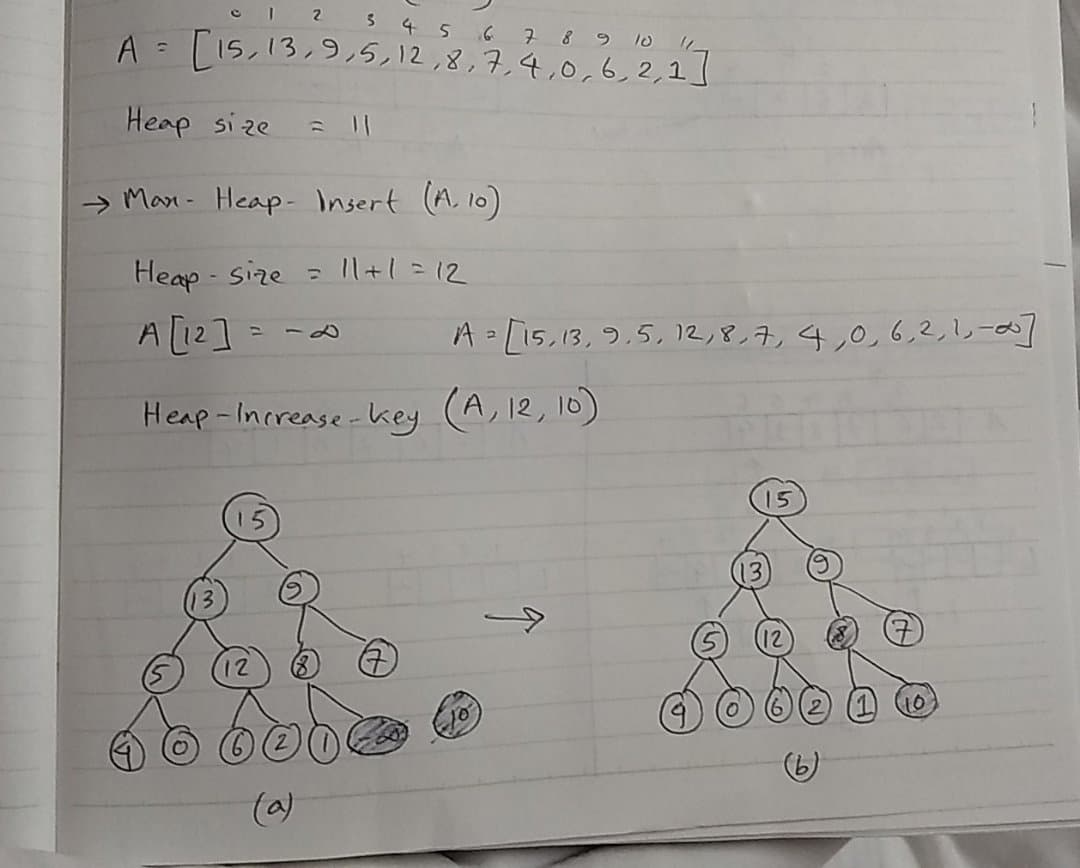 0 1 2 3 4 5 6 7 8 9 10 11
A = [15, 13, 9, 5, 12, 8, 7, 4, 0, 6, 2, 1]
Heap size = 11
→ Max - Heap - Insert (A, 10)
Heap - size = 11+1 = 12
A[12] = -∞ A = [15, 13, 9, 5, 12, 8, 7, 4, 0, 6, 2, 1, -∞]
Heap - Increase - key (A, 12, 10)
15 15
13 9 → 13 9
5 12 8 7 5 12 8 7
4 0 6 2 1 -∞ 10 4 0 6 2 1 10
(a) (b)